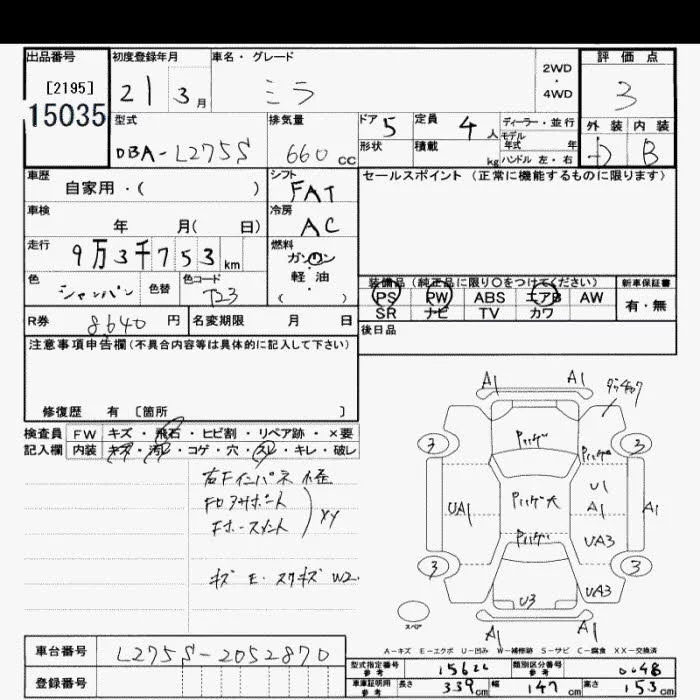 出品番号
[2195]
15035
初度登録年月
21 3月
車名・グレード
ミラ
2WD
・
4WD
評価点
3
外装 内装
D B
型式
DBA-L275S
排気量
660cc
ドア 5
定員 4人
ディーラー・並行
モデル
年式 年
形状
積載 kg
ハンドル 左・右
車歴
自家用・( )
シフト
FAT
セールスポイント (正常に機能するものに限ります)
車検
年 月( 日)
冷房
AC
走行
9万3千753km
燃料
ガソリン
・
軽油
( )
色
シャンパン
色替
色コード
T23
装備品 (純正品に限り○をつけてください)
PS PW ABS エアB AW
SR ナビ TV カワ
新車保証書
有・無
R券 8,640円
名変期限 月 日
後日品
注意事項申告欄(不具合内容等は具体的に記入して下さい)
修復歴 有 〔箇所 〕
検査員
記入欄
FW キズ・飛石・ヒビ割・リペア跡・×要
内装 キズ・汚レ・コゲ・穴・スレ・キレ・破レ
右Fインパネ
XX
キズ E. スリキズ W2.
A1 A1
3 3
UA1
U1
A1
A1
UA3
3 3
UA3
U3
スペア
A1 A1
A-キズ E-エクボ U-凹み W-補修跡 S-サビ C-腐食 XX-交換済
車台番号 L275S-2052870
登録番号
型式指定番号
参考
類別区分番号
参考
0048
車庫証明用
参考
長さ 339cm 幅 147cm 高さ 153cm